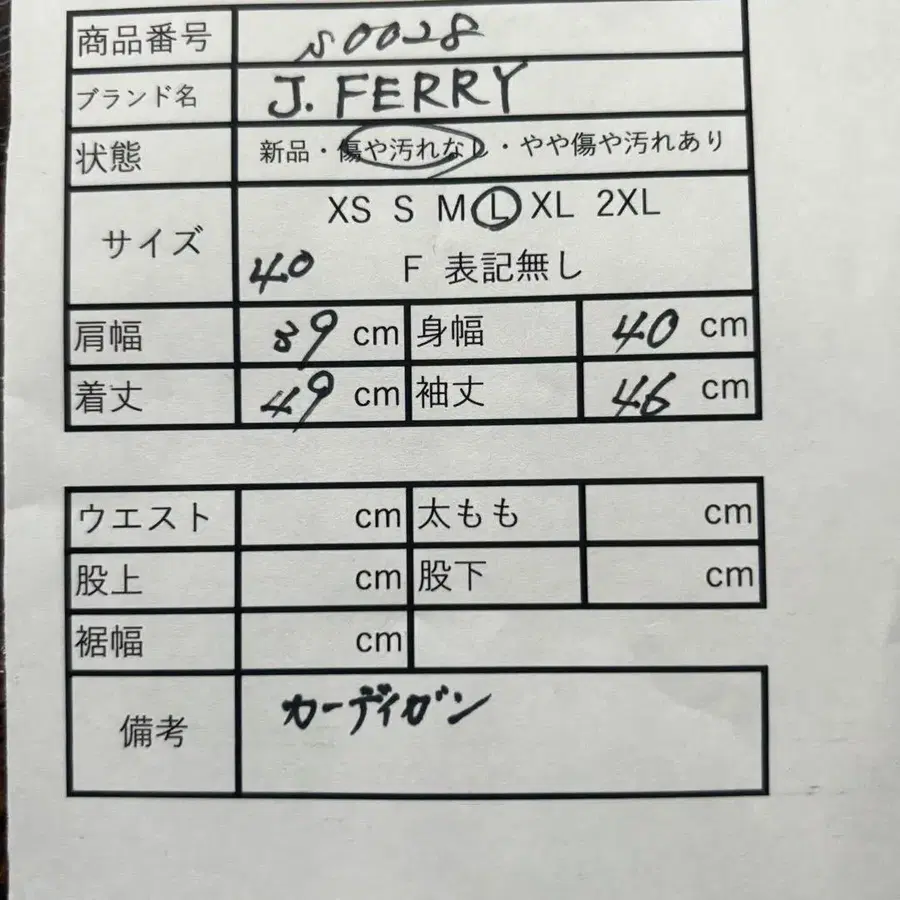 商品番号 S0028
ブランド名 J. FERRY
状態 新品・傷や汚れなし・やや傷や汚れあり
サイズ XS S M L XL 2XL
40 F 表記無し
肩幅 39 cm 身幅 40 cm
着丈 49 cm 袖丈 46 cm
ウエスト cm 太もも cm
股上 cm 股下 cm
裾幅 cm
備考 カーディガン